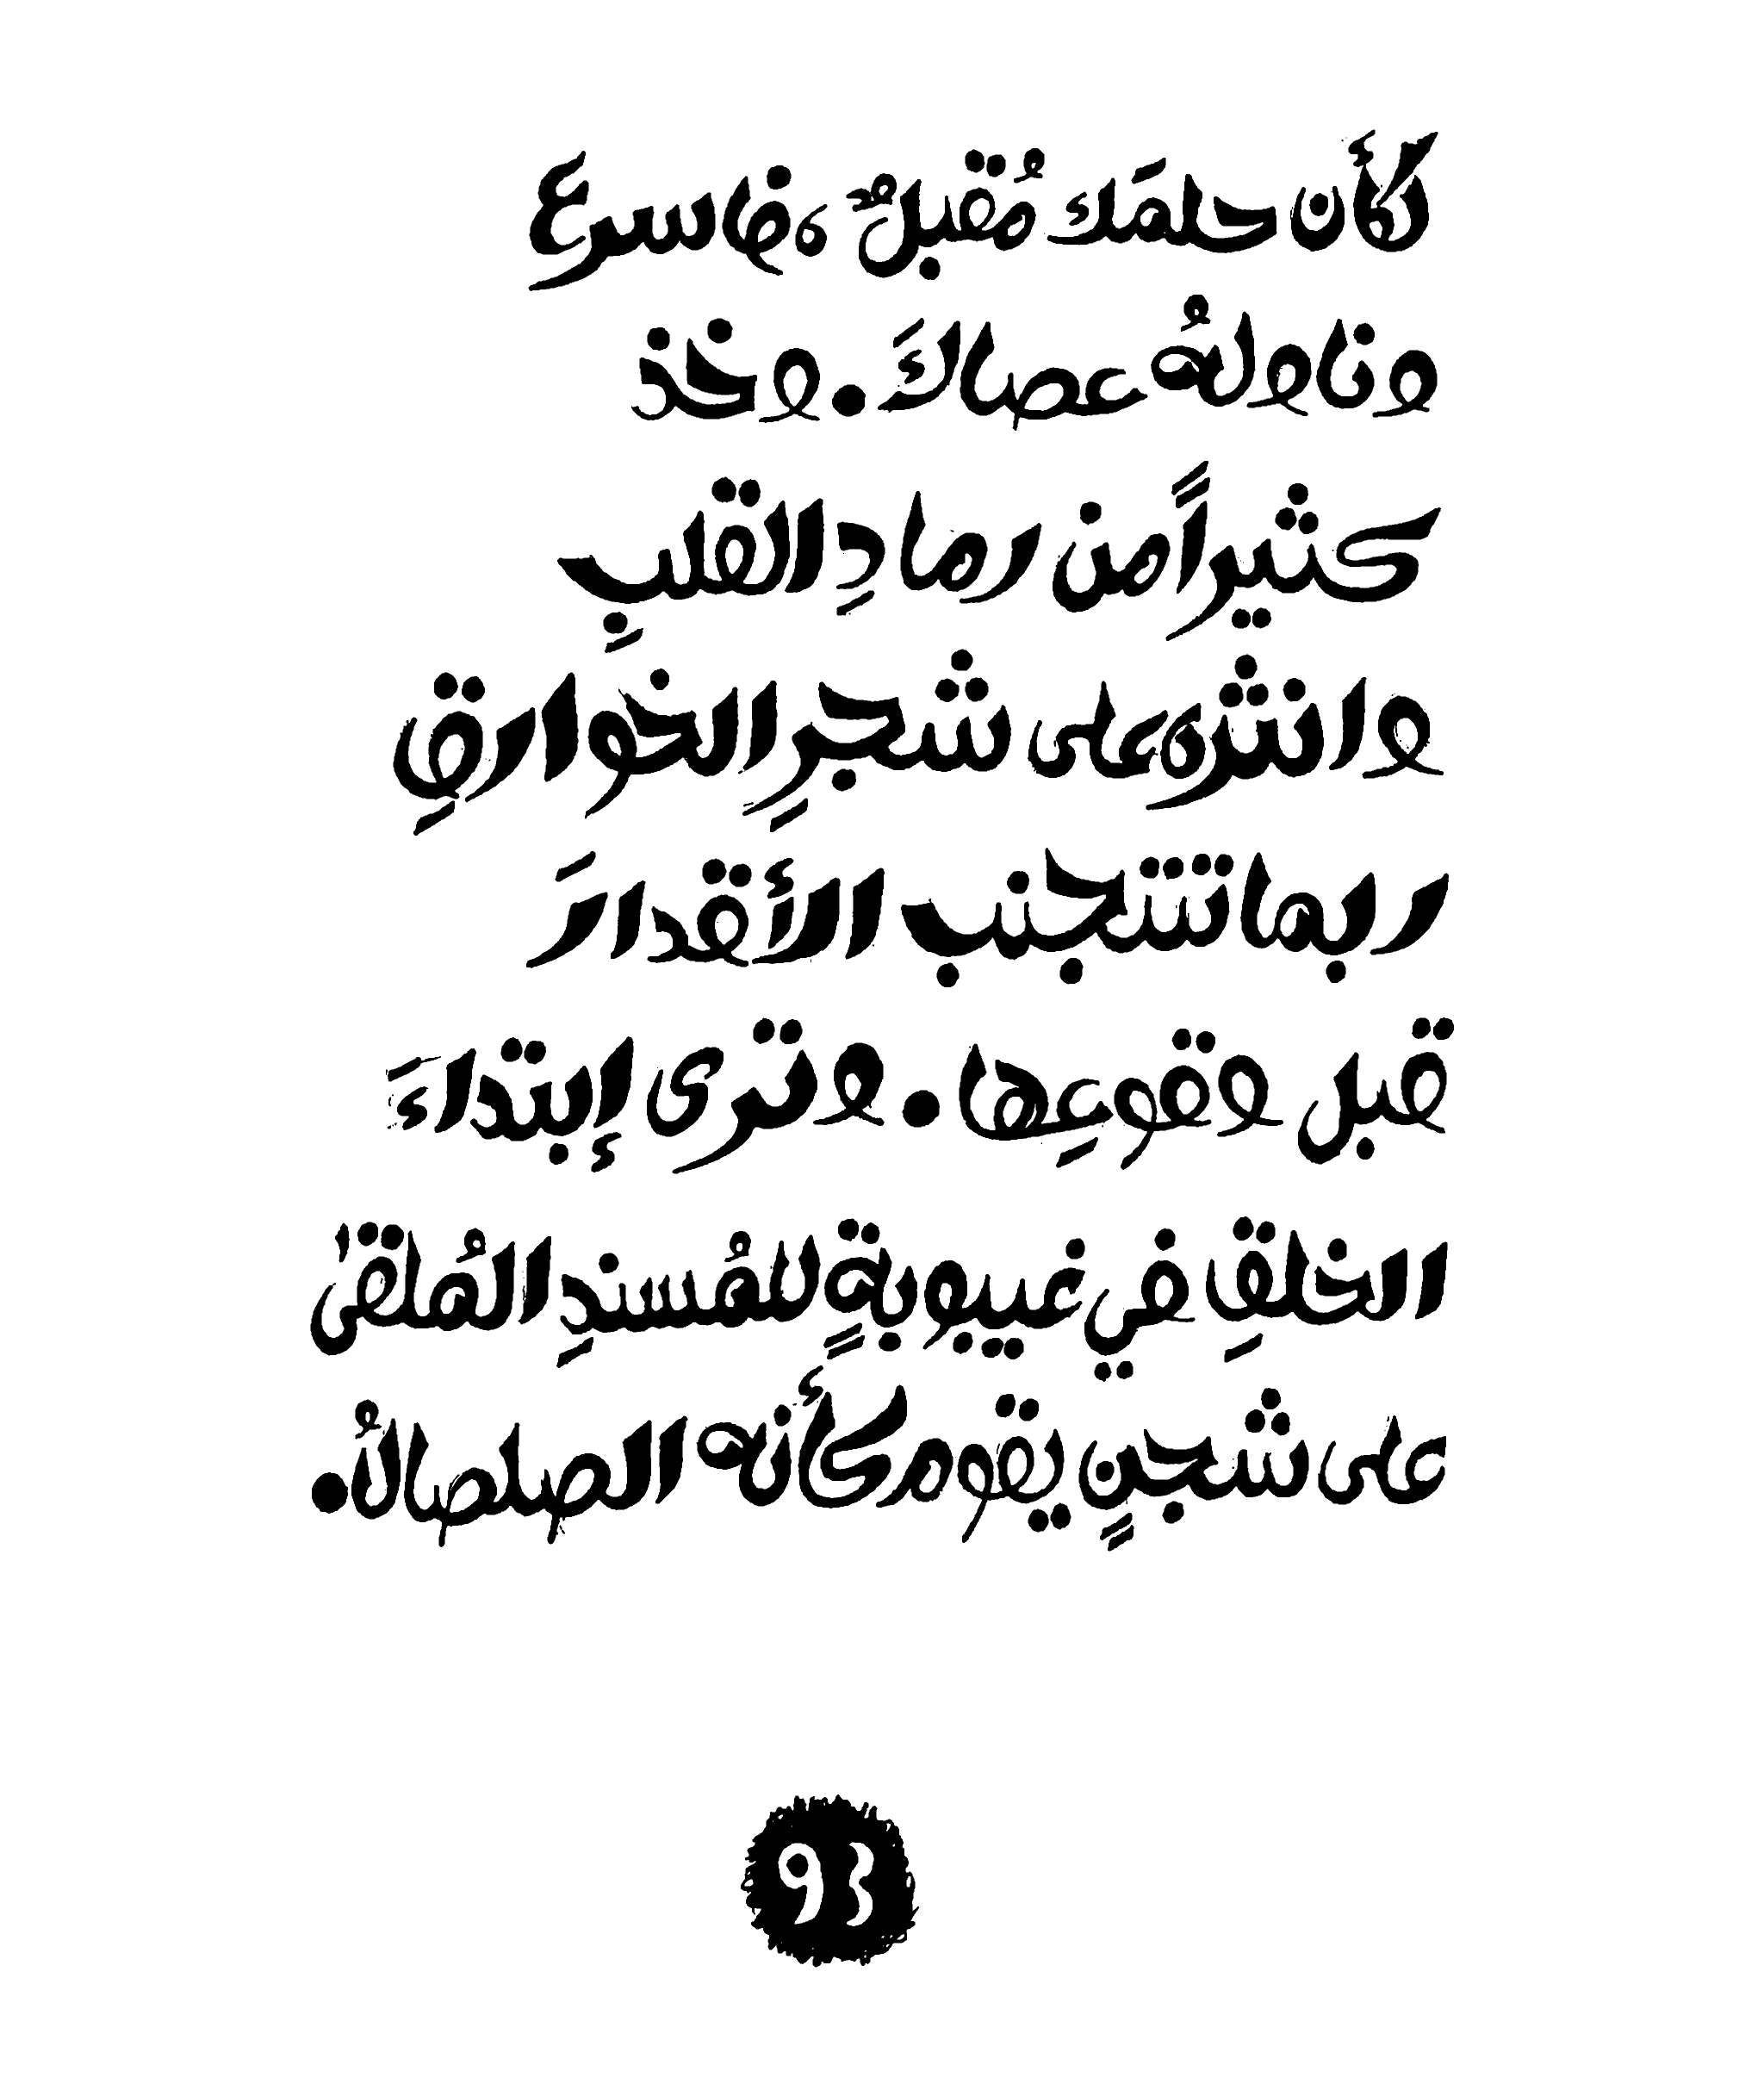 كأن حلمَك مُقبلٌ، فاسرعَ
وناولهُ عصاكَ. وخذ
كثيراً من رمادِ القلبِ
وانثره على شجرِ الخوارقِ
ربما تتجنب الأقدارَ
قبل وقوعِها. وترى إبتداءَ
الخلقِ في غيبوبةٍ للمُسندِ المُلقىٰ
على شجنٍ يقوم كأنه الصلصالُ.
93